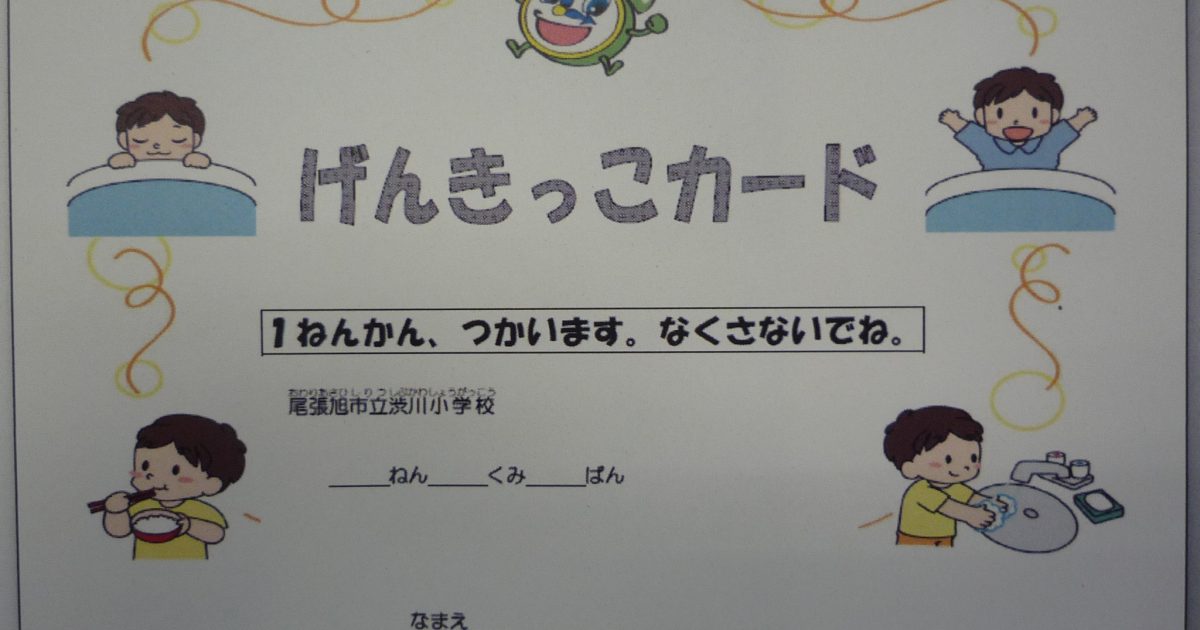 げんきっこカード
1ねんかん、つかいます。なくさないでね。
おわりあさひしりつしぶかわしょうがっこう
尾張旭市立渋川小学校
_____ねん_____くみ_____ばん
なまえ